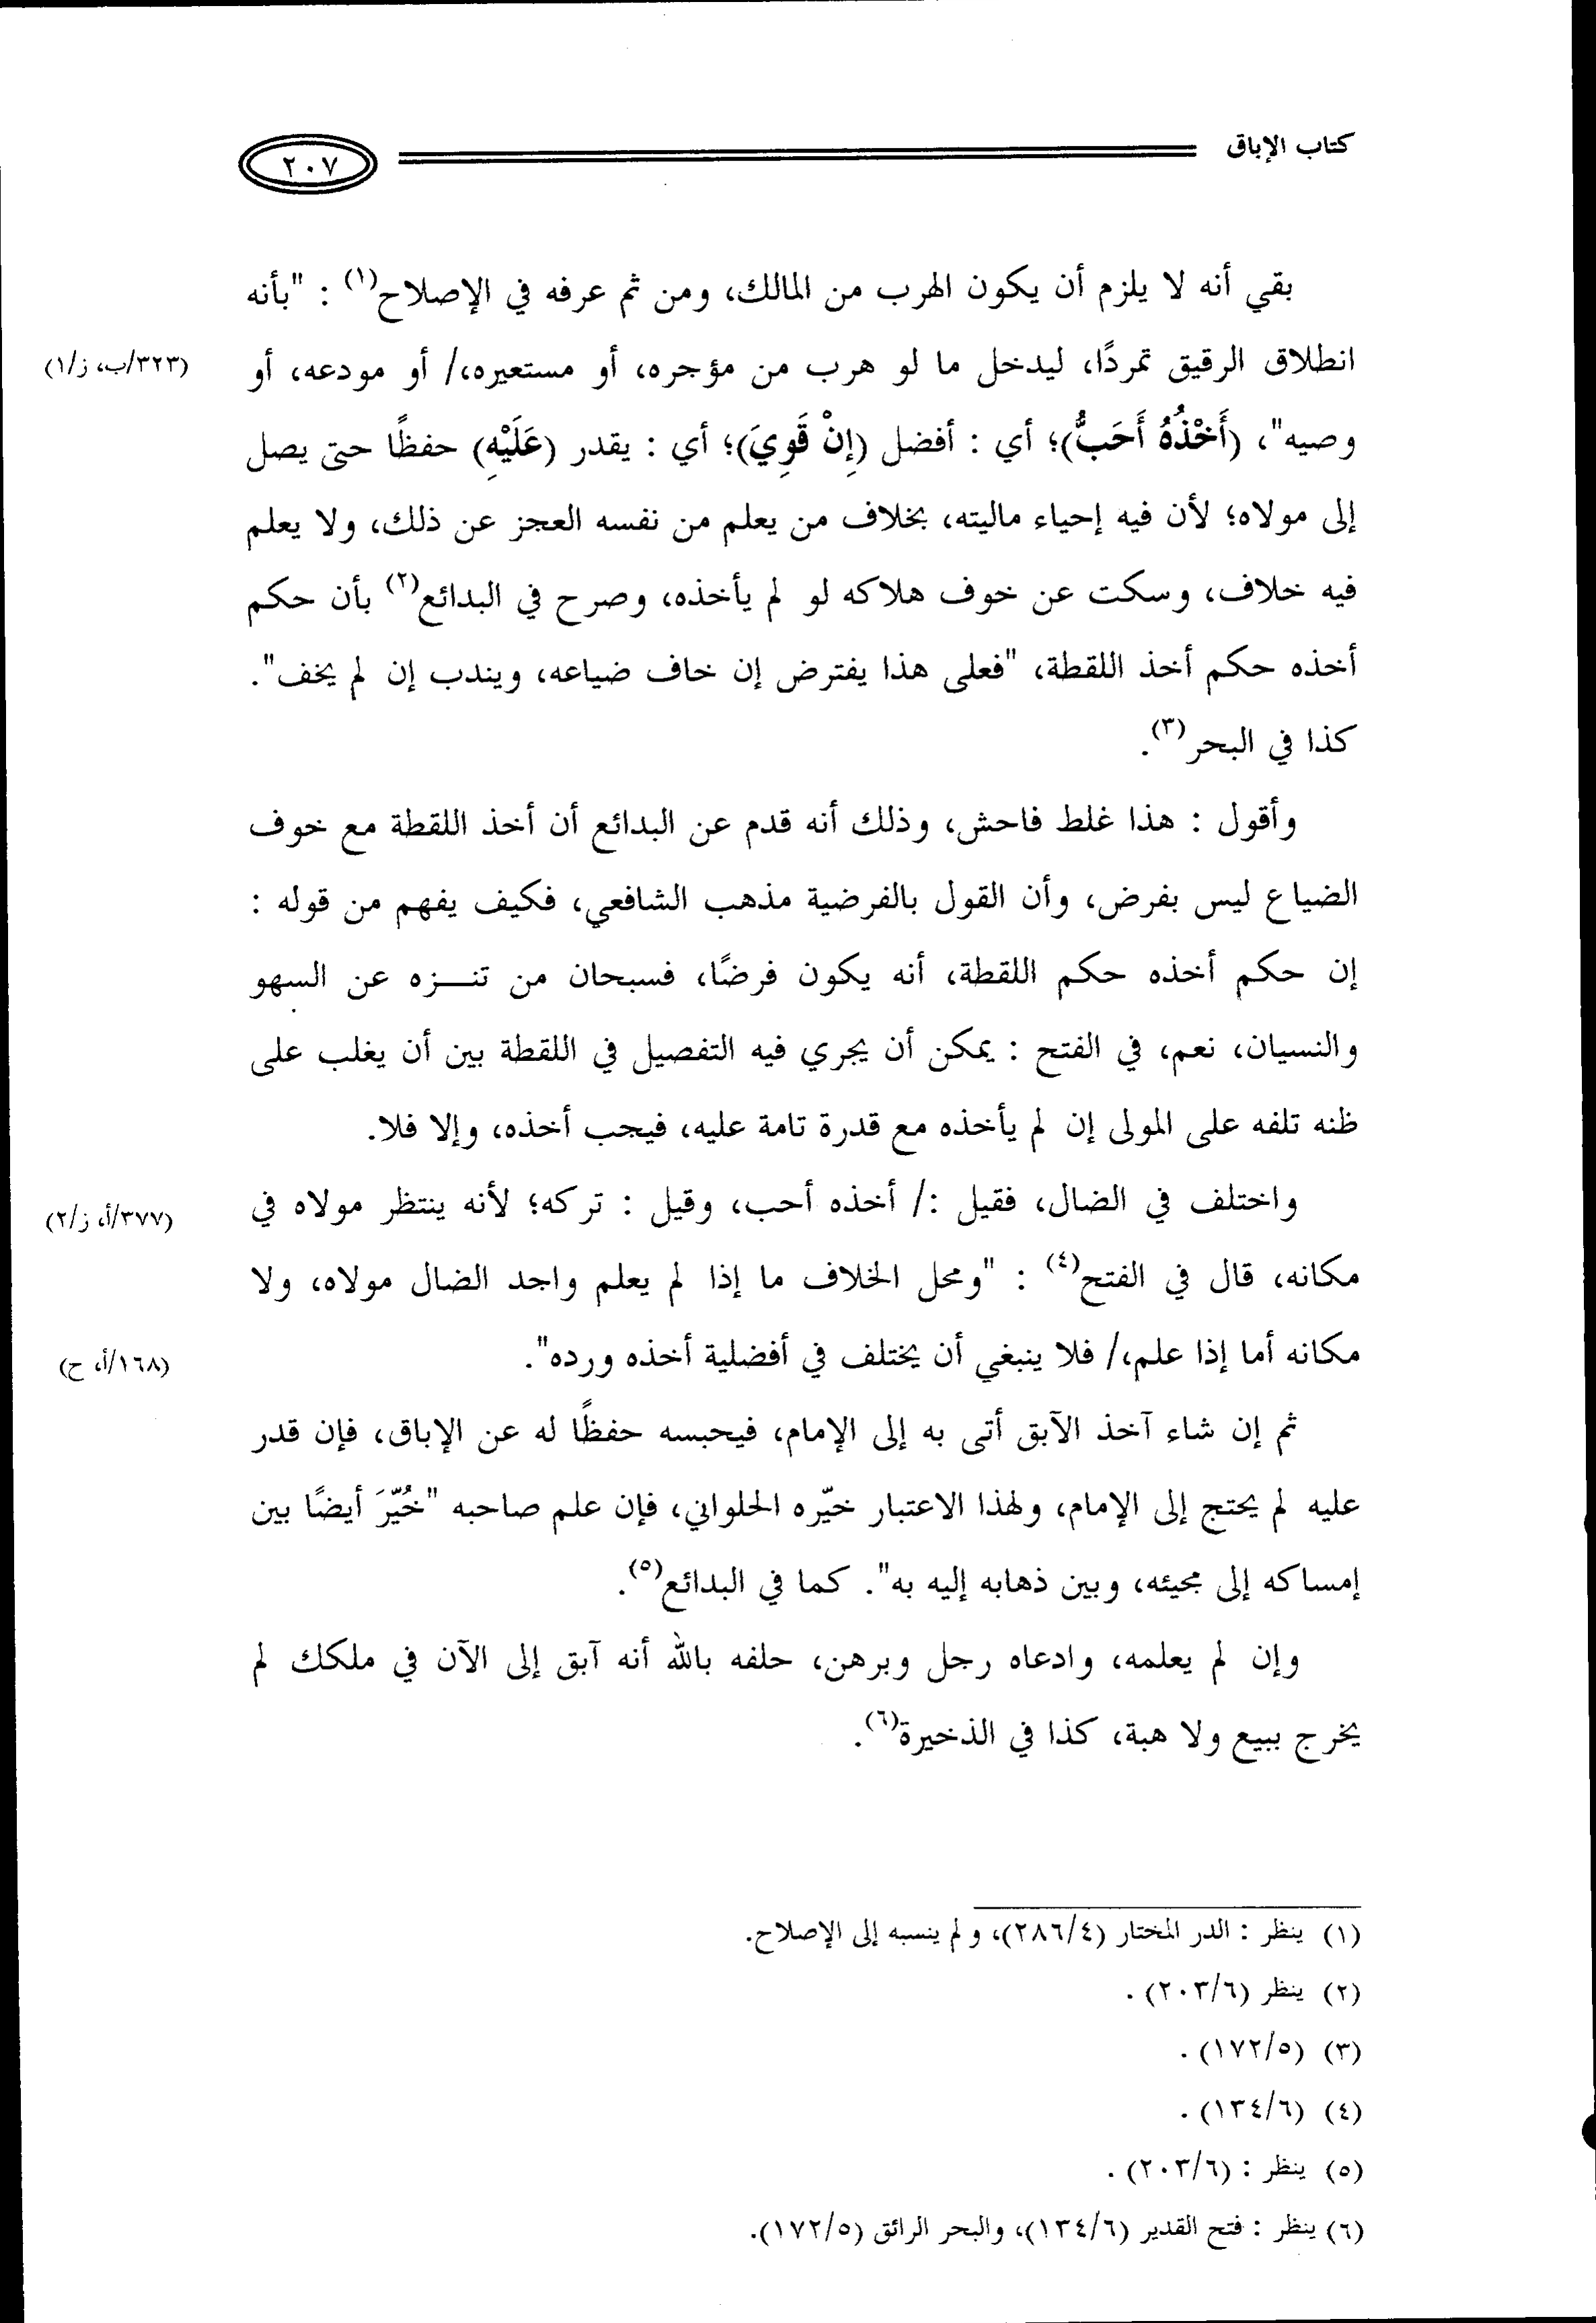 كتاب الإباق
٢٠٧
بقي أنه لا يلزم أن يكون الهرب من المالك، ومن ثم عرفه في الإصلاح(١) : "بأنه
انطلاق الرقيق تمردًا، ليدخل ما لو هرب من مؤجره، أو مستعيره،/ أو مودعه، أو
(٣٢٣/ب، ز/١)
وصيه"، (أَخْذُهُ أَحَبُّ)؛ أي : أفضل (إِنْ قَوِيَ)؛ أي : يقدر (عَلَيْهِ) حفظًا حتى يصل
إلى مولاه؛ لأن فيه إحياء ماليته، بخلاف من يعلم من نفسه العجز عن ذلك، ولا يعلم
فيه خلاف، وسكت عن خوف هلاكه لو لم يأخذه، وصرح في البدائع(٢) بأن حكم
أخذه حكم أخذ اللقطة، "فعلى هذا يفترض إن خاف ضياعه، ويندب إن لم يخف".
كذا في البحر(٣).
وأقول : هذا غلط فاحش، وذلك أنه قدم عن البدائع أن أخذ اللقطة مع خوف
الضياع ليس بفرض، وأن القول بالفرضية مذهب الشافعي، فكيف يفهم من قوله :
إن حكم أخذه حكم اللقطة، أنه يكون فرضًا، فسبحان من تنـــزه عن السهو
والنسيان، نعم، في الفتح : يمكن أن يجري فيه التفصيل في اللقطة بين أن يغلب على
ظنه تلفه على المولى إن لم يأخذه مع قدرة تامة عليه، فيجب أخذه، وإلا فلا.
واختلف في الضال، فقيل :/ أخذه أحب، وقيل : تركه؛ لأنه ينتظر مولاه في
(٣٧٧/أ، ز/٢)
مكانه، قال في الفتح(٤) : "ومحل الخلاف ما إذا لم يعلم واجد الضال مولاه، ولا
مكانه أما إذا علم،/ فلا ينبغي أن يختلف في أفضلية أخذه ورده".
(١٦٨/أ، ح)
ثم إن شاء آخذ الآبق أتى به إلى الإمام، فيحبسه حفظًا له عن الإباق، فإن قدر
عليه لم يحتج إلى الإمام، ولهذا الاعتبار خيّره الحلواني، فإن علم صاحبه "خُيّرَ أيضًا بين
إمساكه إلى مجيئه، وبين ذهابه إليه به". كما في البدائع(٥).
وإن لم يعلمه، وادعاه رجل وبرهن، حلفه بالله أنه آبق إلى الآن في ملكك لم
يخرج ببيع ولا هبة، كذا في الذخيرة(٦).
(١) ينظر : الدر المختار (٢٨٦/٤)، ولم ينسبه إلى الإصلاح.
(٢) ينظر (٢٠٣/٦) .
(٣) (١٧٢/٥) .
(٤) (١٣٤/٦) .
(٥) ينظر : (٢٠٣/٦) .
(٦) ينظر : فتح القدير (١٣٤/٦)، والبحر الرائق (١٧٢/٥).